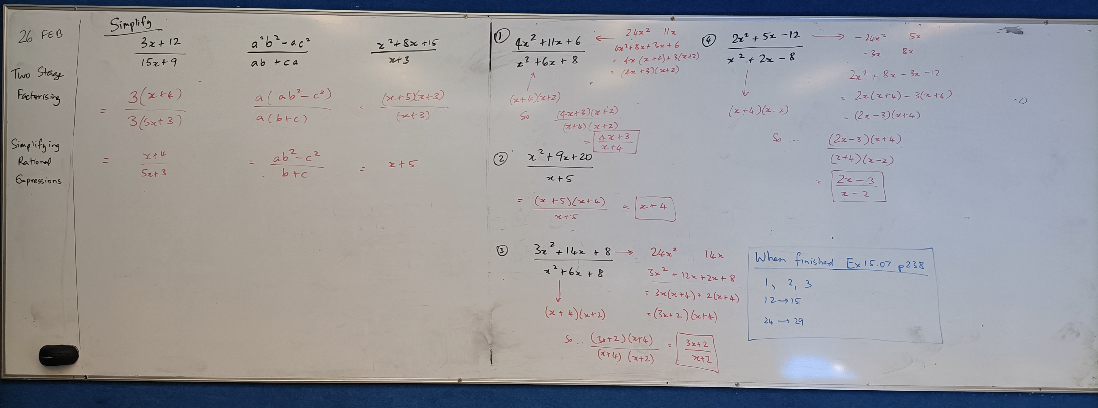 26 FEB
Two Stage
Factorising
Simplifying
Rational
Expressions
Simplify
3x+12 / 15x+9
= 3(x+4) / 3(5x+3)
= x+4 / 5x+3
a²b²-ac² / ab+ca
= a(ab²-c²) / a(b+c)
= ab²-c² / b+c
x²+8x+15 / x+3
= (x+5)(x+3) / (x+3)
= x+5
① 4x²+11x+6 / x²+6x+8
24x² 11x
4x²+8x+3x+6
= 4x(x+2)+3(x+2)
(x+4)(x+2)
So (4x+3)(x+2) / (x+4)(x+2)
= 4x+3 / x+4
② x²+9x+20 / x+5
= (x+5)(x+4) / x+5 = x+4
③ 3x²+14x+8 / x²+6x+8 → 24x² 14x
3x²+12x+2x+8
= 3x(x+4)+2(x+4)
= (3x+2)(x+4)
(x+4)(x+2)
So .. (3x+2)(x+4) / (x+4)(x+2) = 3x+2 / x+2
④ 2x²+5x-12 / x²+2x-8 → -24x² 5x
-3x 8x
2x²+8x-3x-12
= 2x(x+4)-3(x+4)
= (2x-3)(x+4)
(x+4)(x-2)
So .. (2x-3)(x+4) / (x+4)(x-2)
= 2x-3 / x-2
When finished Ex 15.07 p238
1, 2, 3
12→15
24→29